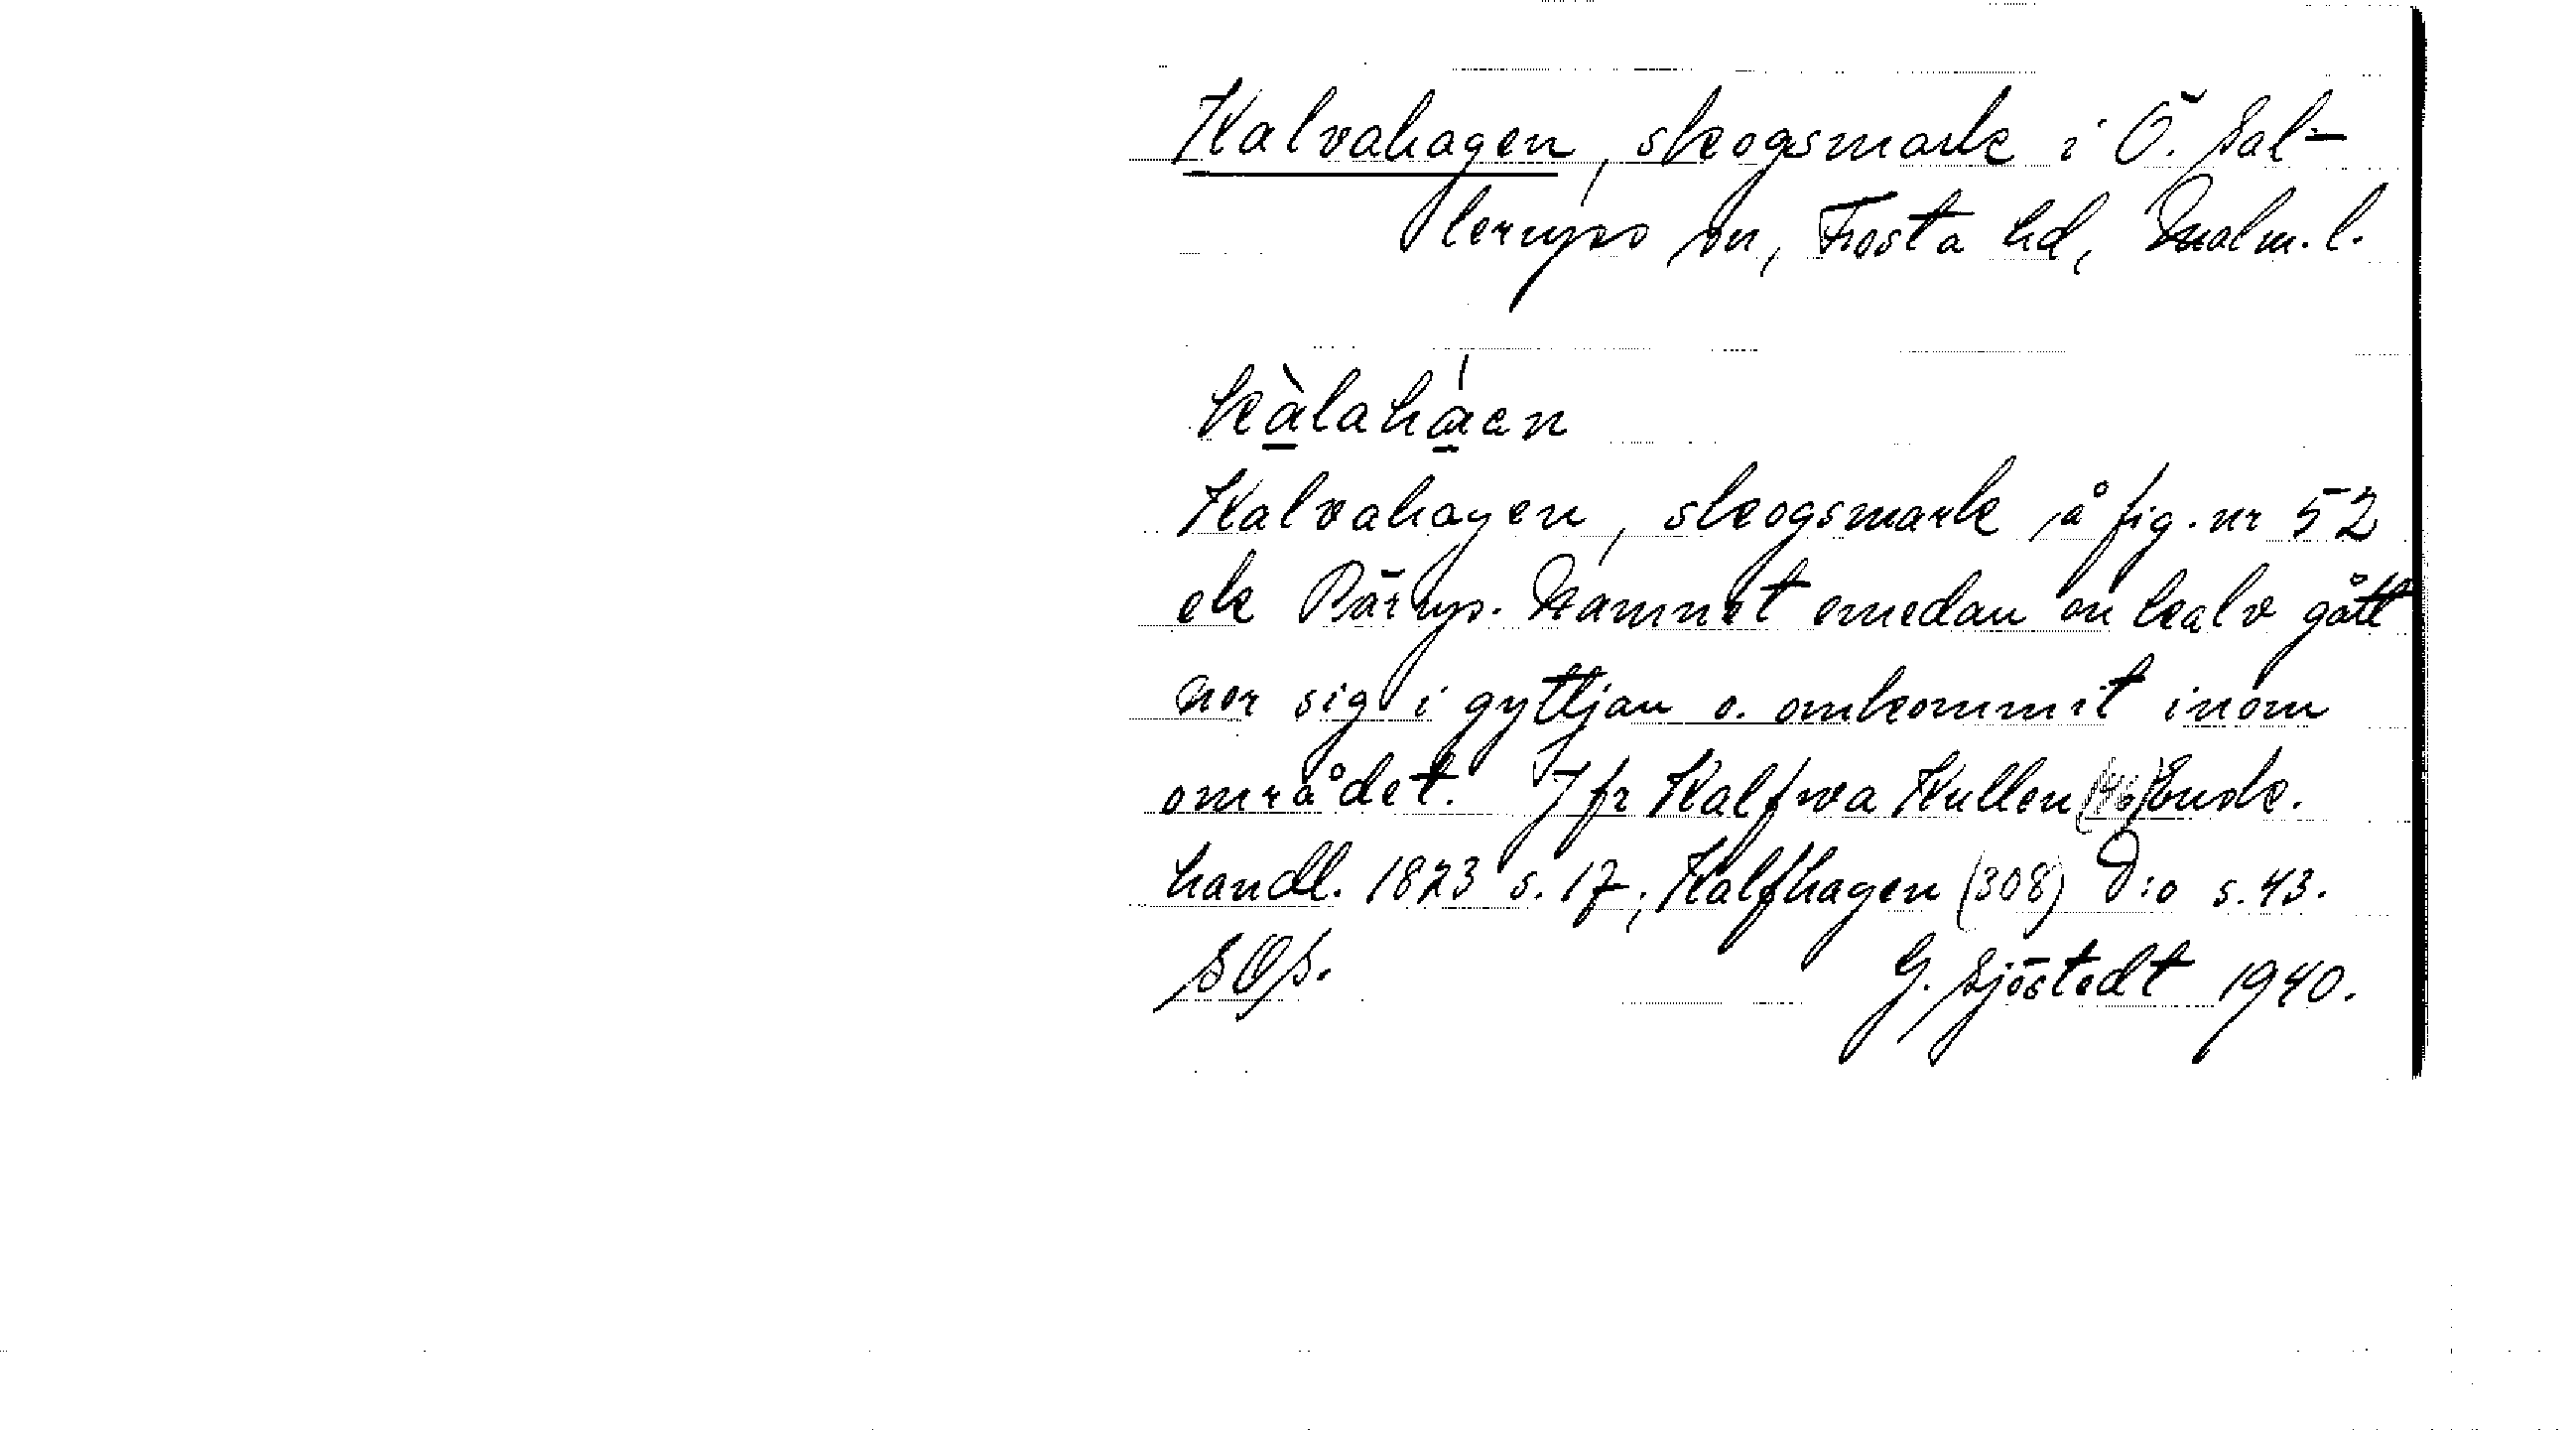 Kalvahagen, skogsmark i Ö. Sal-
lerups sn, Frosta hd, Malm. l.
kàlahá̱en
Kalvahagen, skogsmark på fig. nr 52
ek Pärup. Namnet emedan en kalv gått
ner sig i gyttjan o. omkommit inom
området. Jfr Kalfwa Kullen (146) Ensk.
handl. 1823 s. 17; Kalfhagen (308) D:o s. 43.
SOs. G. Sjöstedt 1940.